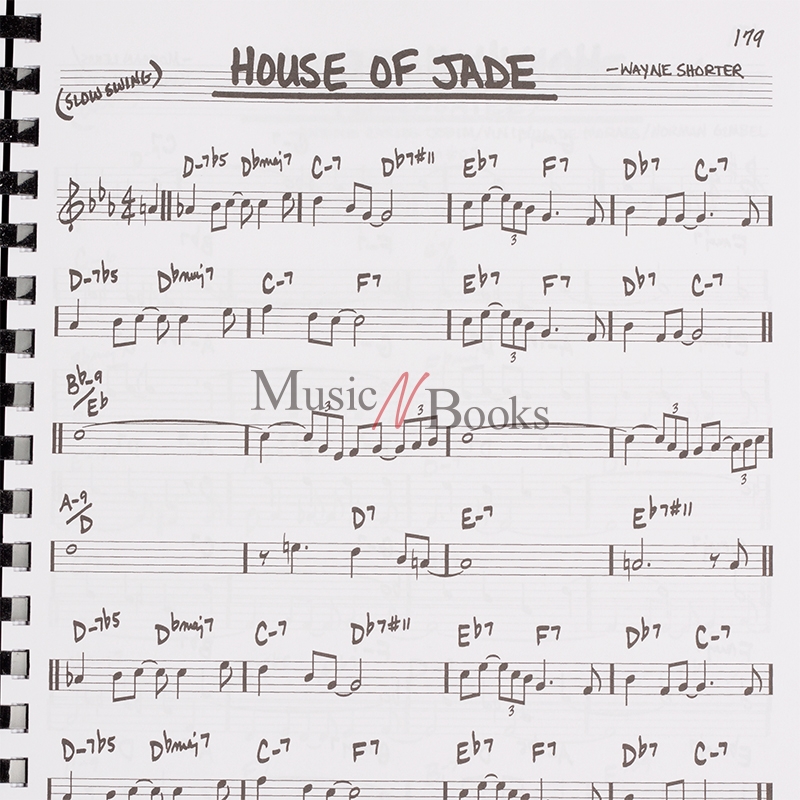 179
HOUSE OF JADE
(SLOW SWING)
-WAYNE SHORTER
D-7b5 Dbmaj7 C-7 Db7#11 Eb7 F7 Db7 C-7
3
D-7b5 Dbmaj7 C-7 F7 Eb7 F7 Db7 C-7
3
Bb-9/Eb
Music N Books
3 3 3
3
A-9/D D7 E-7 Eb7#11
D-7b5 Dbmaj7 C-7 Db7#11 Eb7 F7 Db7 C-7
3
D-7b5 Dbmaj7 C-7 F7 Eb7 F7 Db7 C-7